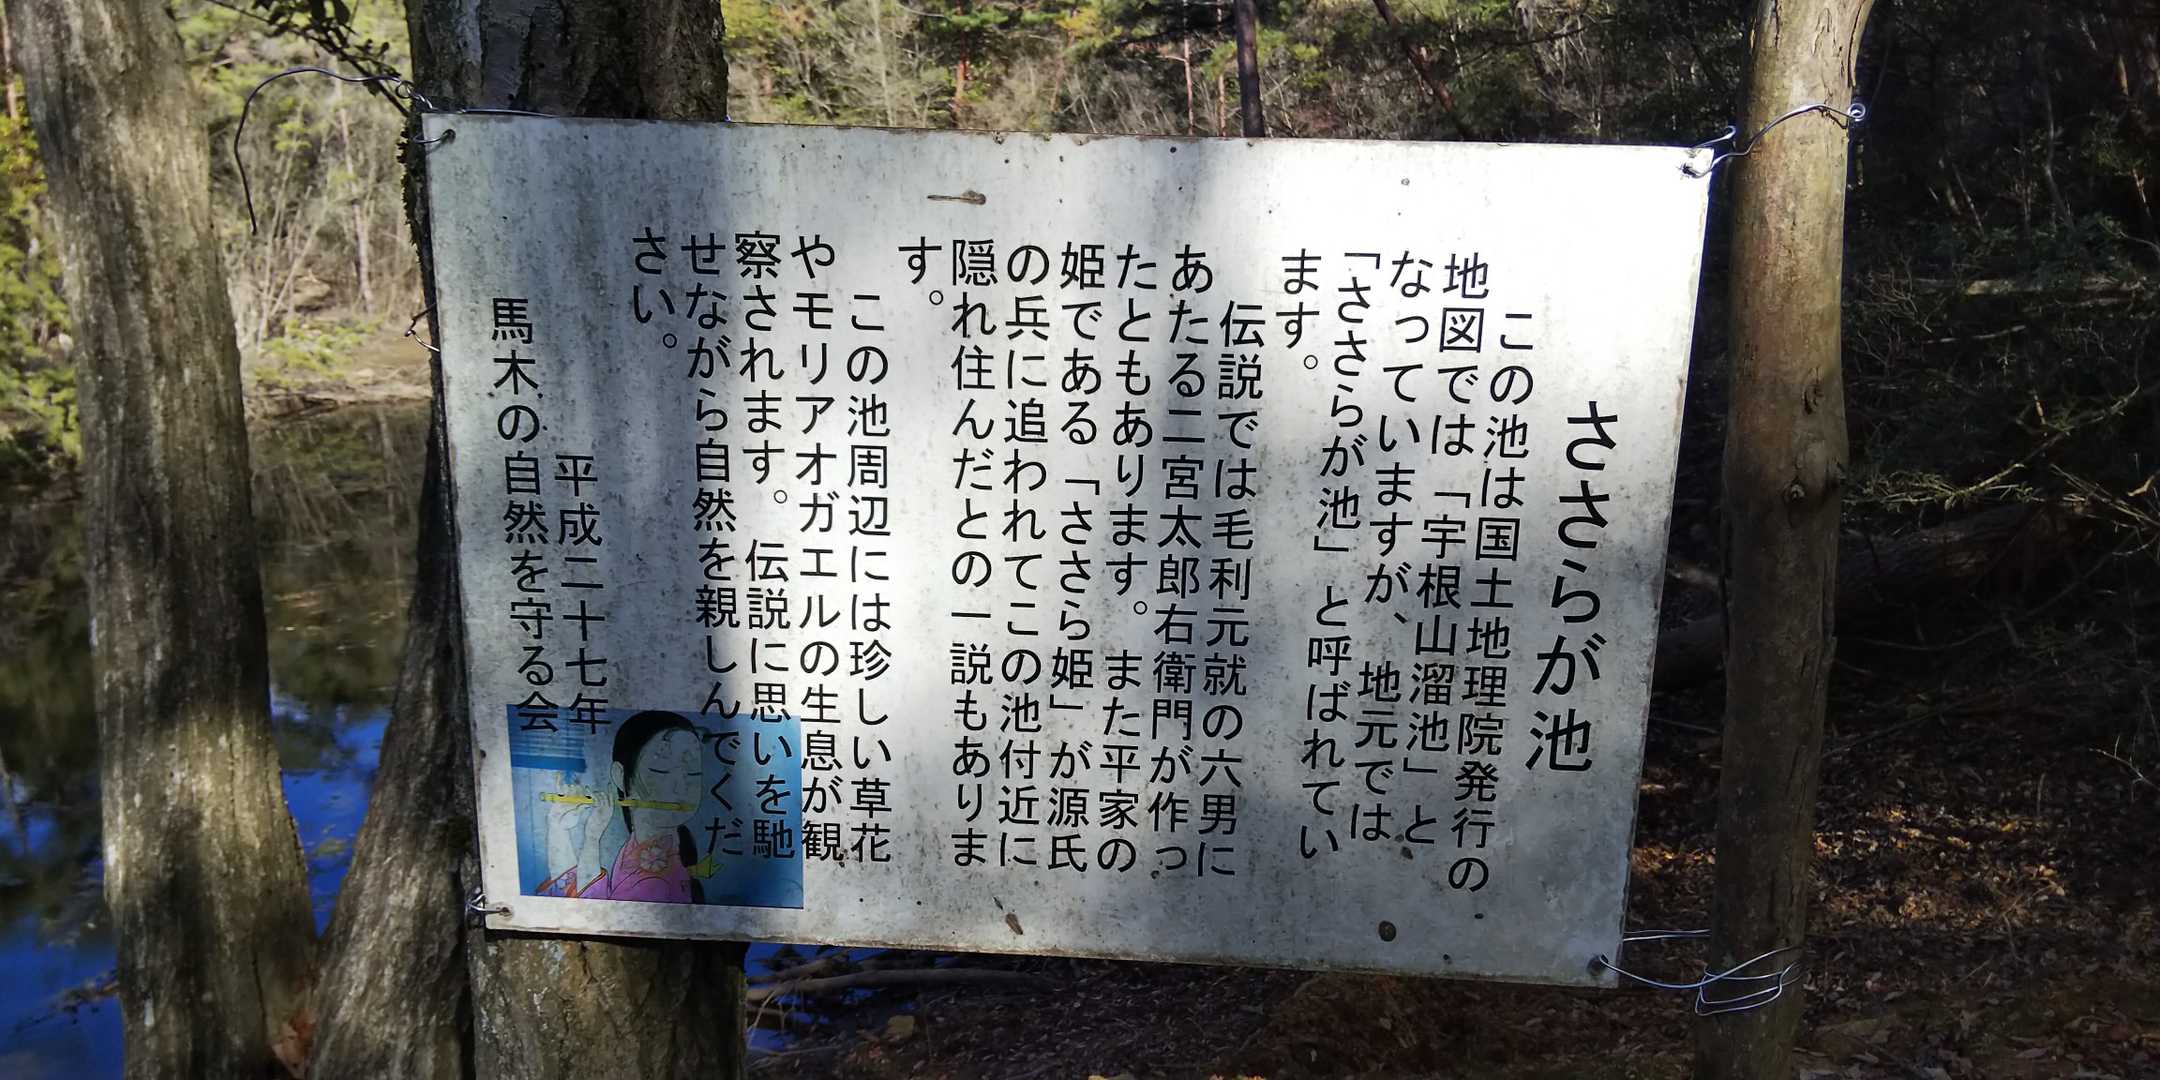 ささらが池
この池は国土地理院発行の
地図では「宇根山溜池」と
なっていますが、地元では
「ささらが池」と呼ばれてい
ます。
伝説では毛利元就の六男に
あたる二宮太郎右衛門が作っ
たともあります。また平家の
姫である「ささら姫」が源氏
の兵に追われてこの池付近に
隠れ住んだとの一説もありま
す。
この池周辺には珍しい草花
やモリアオガエルの生息が観
察されます。伝説に思いを馳
せながら自然を親しんでくだ
さい。
平成二十七年
馬木の自然を守る会